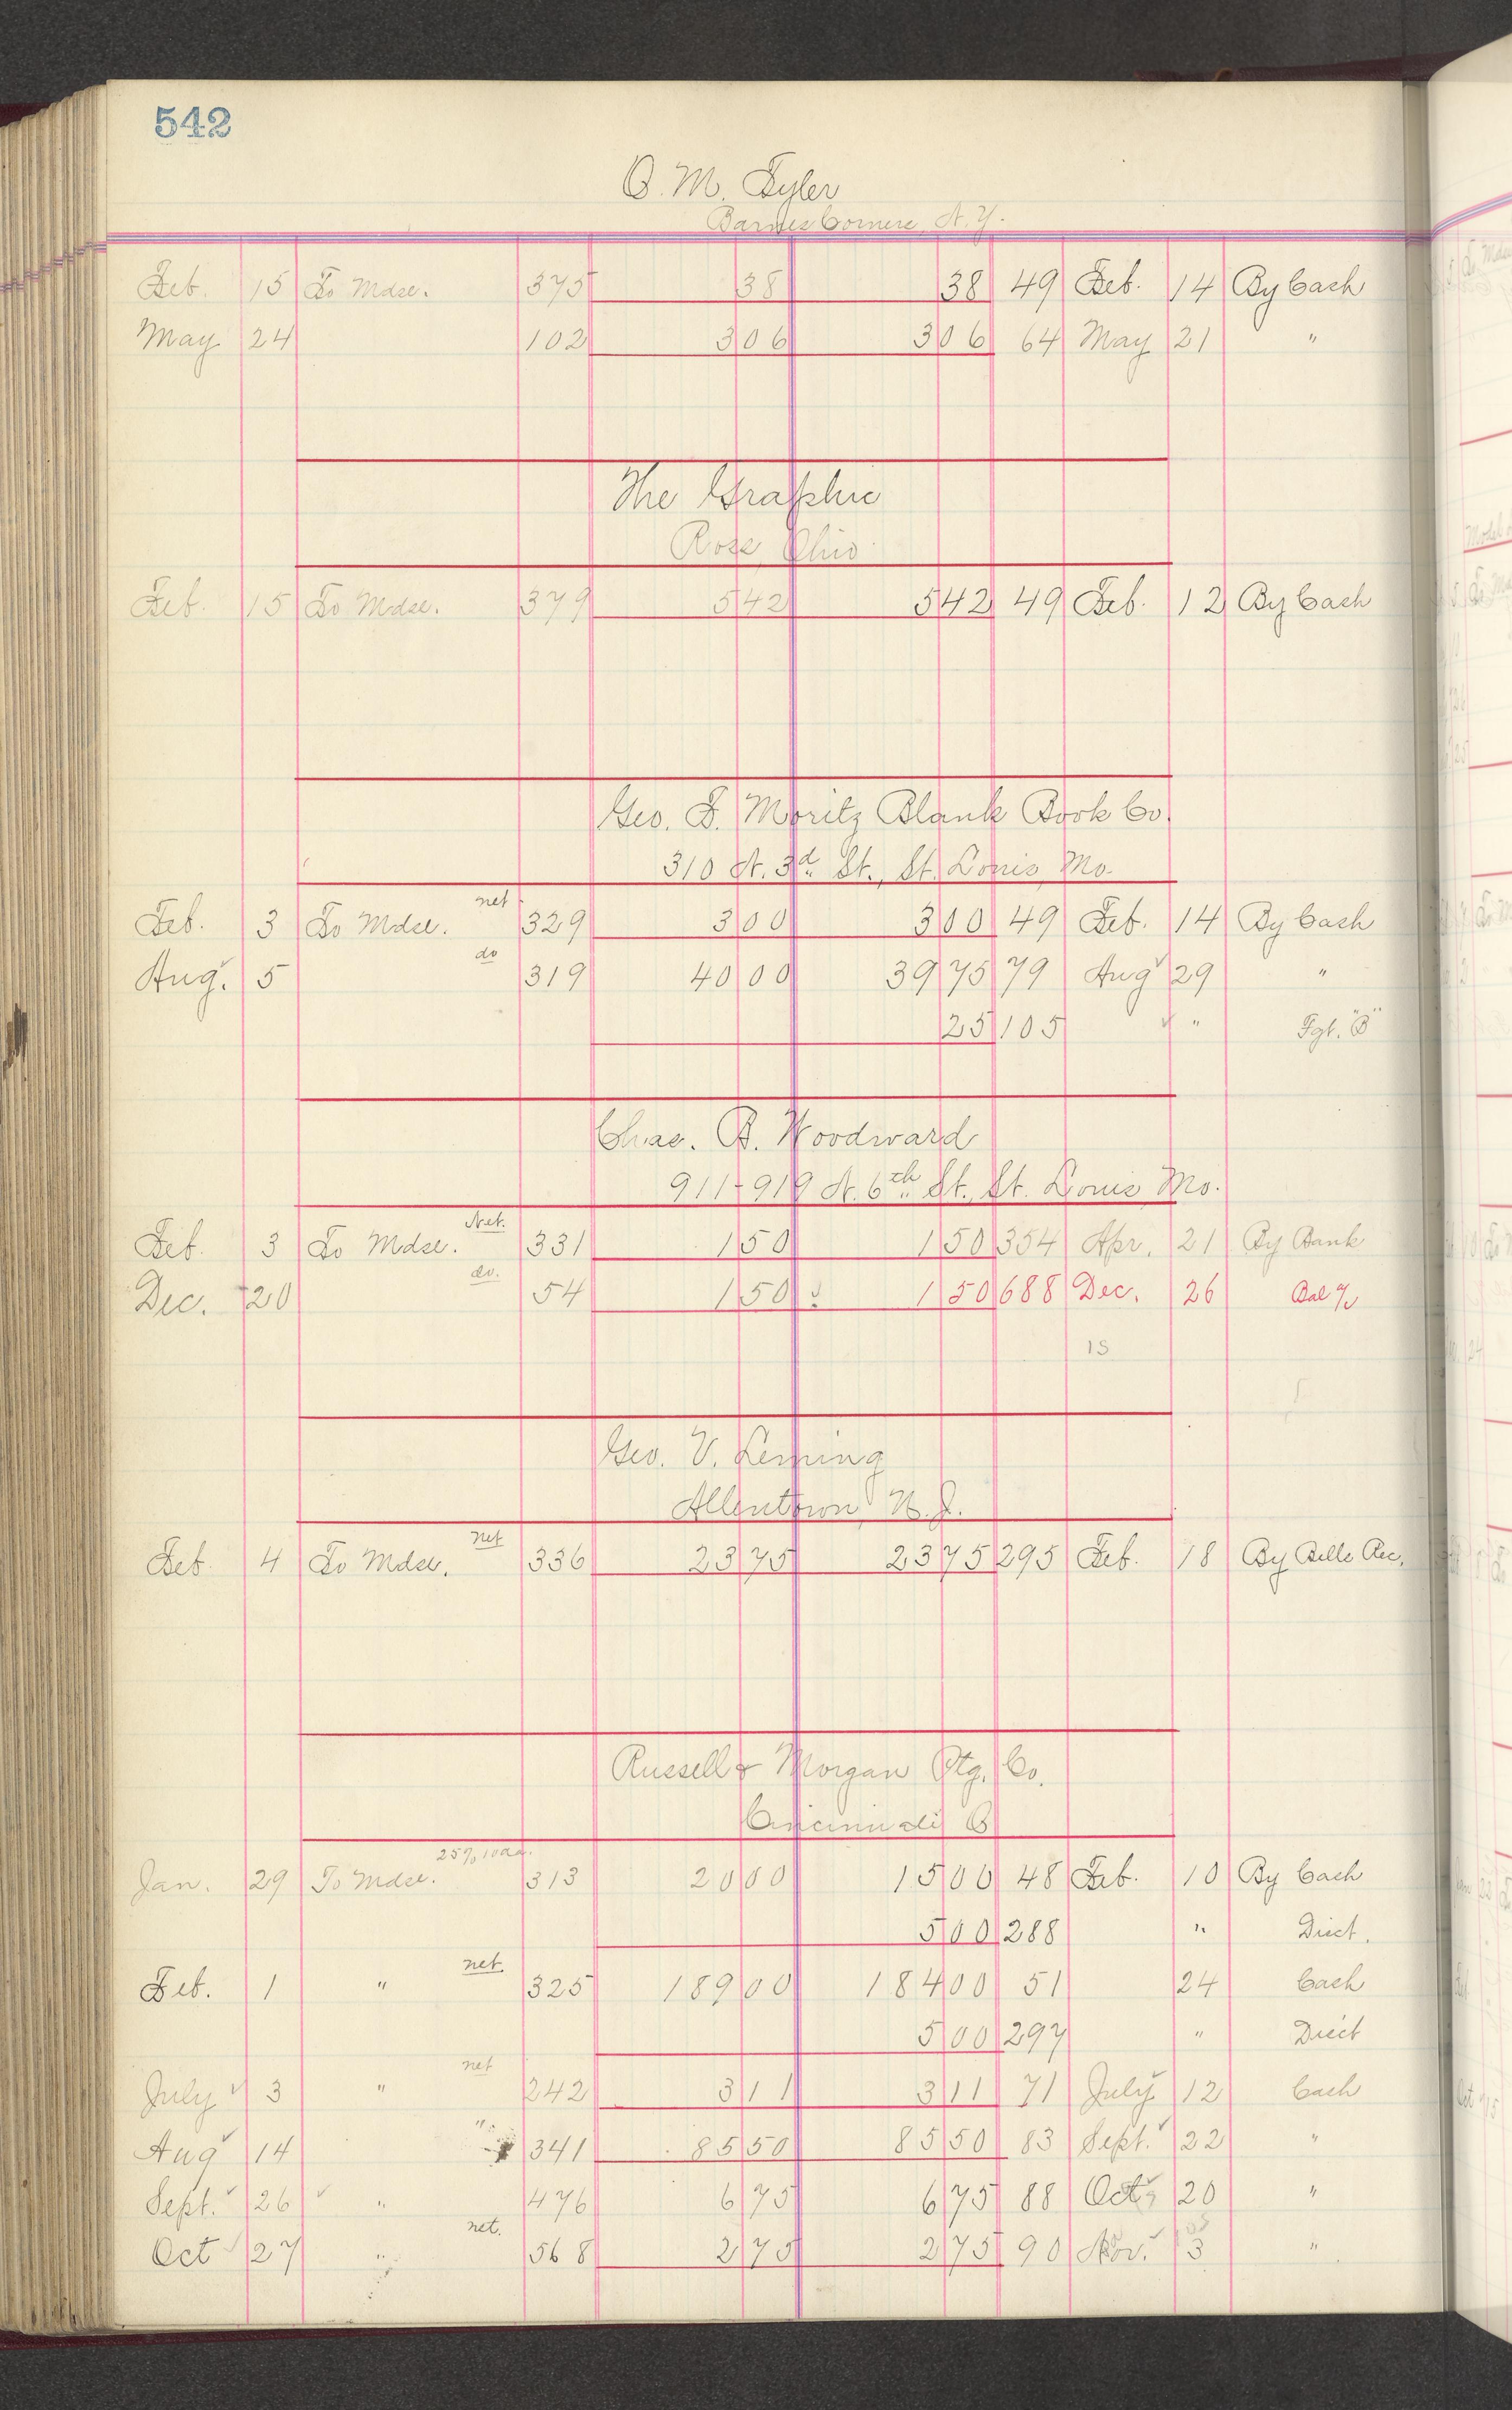 542
O. M. Tyler
Barnes Corners, N.Y.
Feb. 15 To Mdse. 375 38 38 49 Feb. 14 By Cash
May 24 102 3 06 3 06 64 May 21 "
The Graphic
Ross, Ohio
Feb. 15 To Mdse. 379 5 42 5 42 49 Feb. 12 By Cash
Geo. F. Moritz Blank Book Co.
310 N. 3d St., St. Louis, Mo.
net
Feb. 3 To Mdse. 329 3 00 3 00 49 Feb. 14 By Cash
do
Aug. 5 319 40 00 39 75 79 Aug 29 "
25 105 " Fgt. "B"
Chas. B. Woodward
911-919 N. 6th St., St. Louis Mo.
Net.
Feb. 3 To Mdse. 331 1 50 1 50 354 Apr. 21 By Bank
do.
Dec. 20 54 1 50 1 50 688 Dec. 26 Bal
15
Geo. V. Leming
Allentown, N.J.
net
Feb 4 To Mdse. 336 23 75 23 75 295 Feb. 18 By Bills Rec.
Russell & Morgan Ptg. Co.
Cincinnati O
25%
Jan. 29 To Mdse. 313 20 00 15 00 48 Feb. 10 By Cash
5 00 288 " Disct.
net.
Feb. 1 " 325 189 00 184 00 51 24 Cash
5 00 297 " Disct
net
July 3 " 242 3 11 3 11 71 July 12 Cash
"
Aug 14 341 85 50 85 50 83 Sept. 22 "
Sept. 26 " 476 6 75 6 75 88 Oct 20 "
net.
Oct 27 " 568 2 75 2 75 90 Nov. 3 "